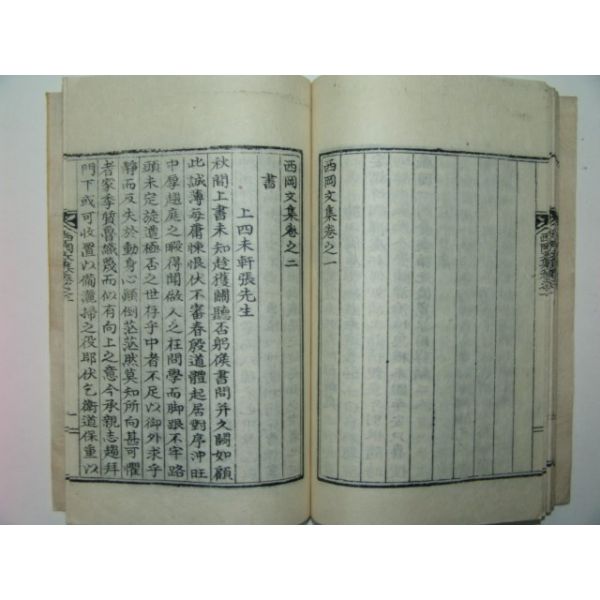 西岡文集卷之一
西岡文集卷之二
書
上四未軒張先生
秋間上書未知趁獲關聽否躬候書問并久闕如顧
此誠薄每庸悚恨伏不審春殷道體起居對序沖旺
中厚趨庭之暇得聞做人之枉問學而脚跟不牢路
頭未定旋遭極否之世存乎中者不足以御外求乎
靜而反失於動身心顚倒茫茫然莫知所向甚可懼
者家季質魯識蔑而似有向上之意今承親志趨拜
門下或可收置以備灑掃之役耶伏乞衛道保重以
西岡文集卷之二
一